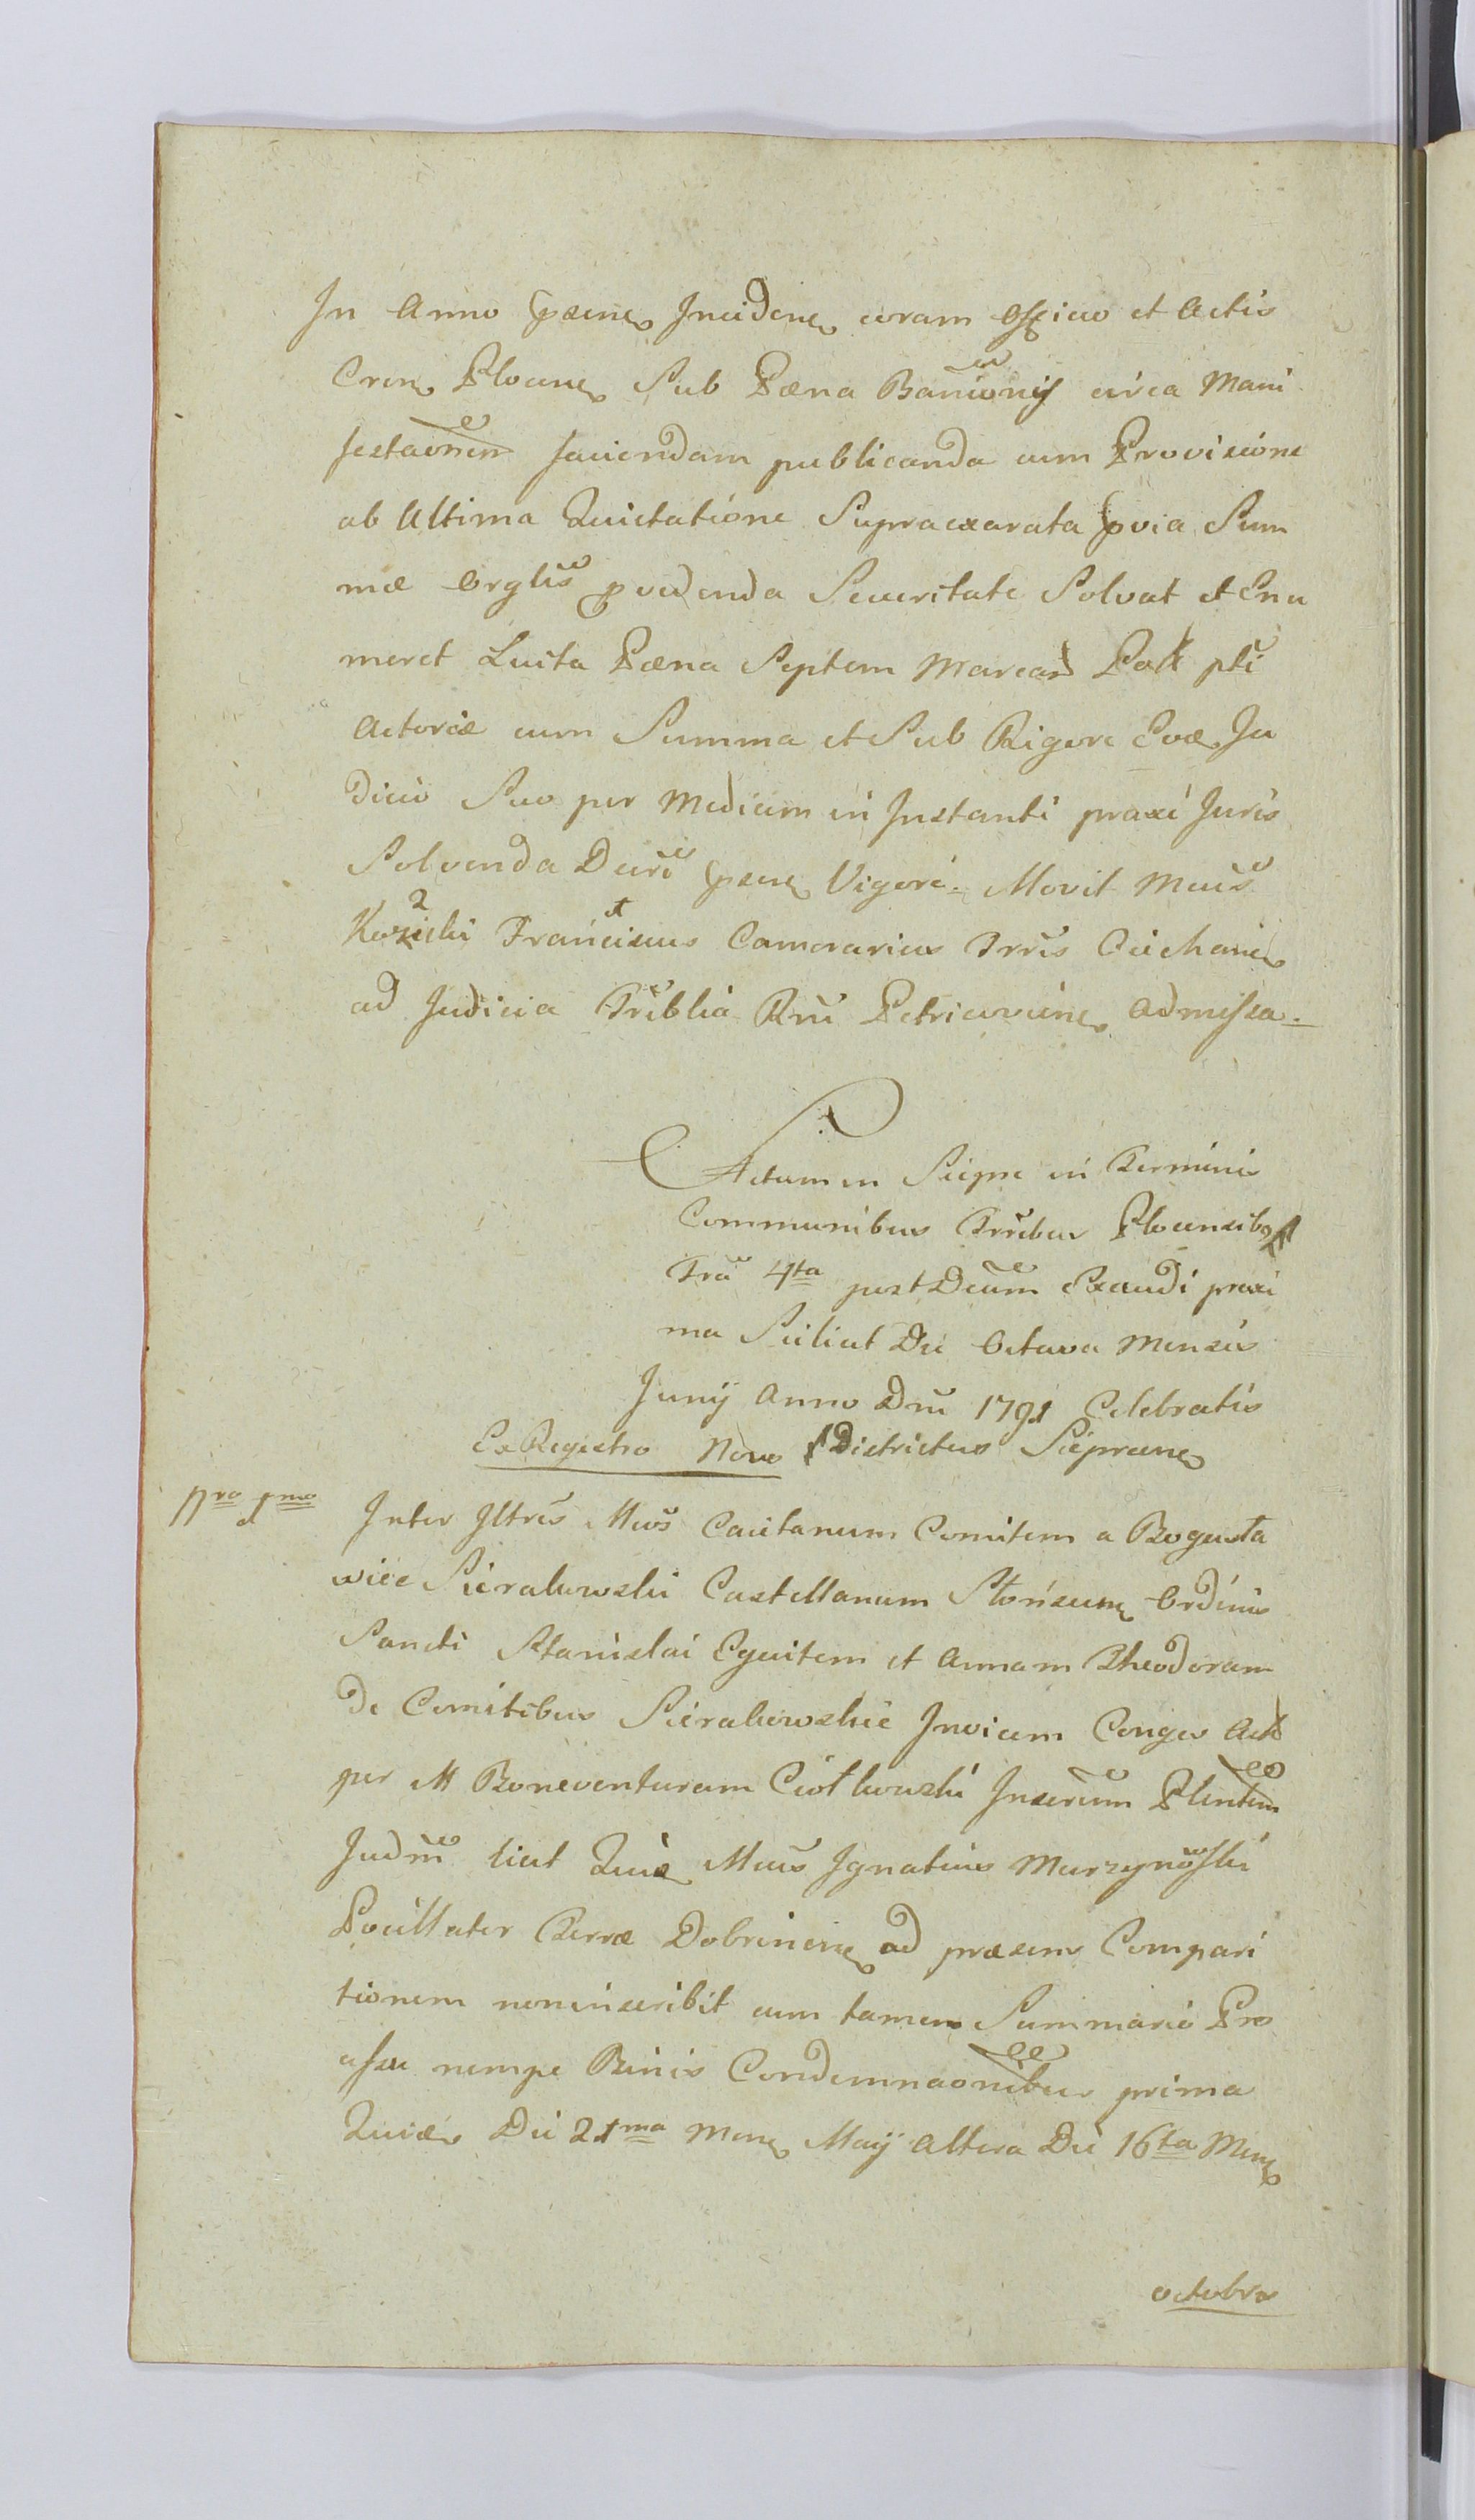 In Anno psenẽ Incidenẽ coram Officio et Actis
Cren Plocens Sub Pæna Banniõnis circa Mani
festaõnem faciendam publicanda cum Provisione
ab Ultima Quietatióne Supraexarata pvia Sum
mæ Orglis pvidenda Securitate Solvat et Enu
meret Luita Pæna Septem Marcar Pol pti
Actoriæ cum Summa et Sub Rigore Evæ Ju
dicio Suo per Medium in Instanti praxi Juris
Solvenda Decrẽ psenẽ Vigore. Movit Mcus
Kozicki Franciscus Camerarius Trrĩs Ciechanẽ
ad Judicia Triblia Rni Petricoviene Admissa.
Actum in Sierpc in Terminis
Communibus Trribus Plocensibs
Fria 4ta post Dcum Exaudi proxi
ma Scilicet Die Octava Mensis
Junÿ Anno Dni 1791 Celebratis
Ex Registro Novo Districtus Siepracens
Nro 1mo
Inter Illres Mcos Caietanum Comitem a Bogusła
wice Sierakowski Castellanum Słońscens Ordinis
Sancti Stanislai Equitem et Annam Theodoram
de Comitibus Sierakowskie Invicem Conges Act
per M Boneventuram Ciółkowski Inscrum Plentem
Judm licet Quia Mcus Ignatius Murzynowski
Pocillator Terræ Dobrinens ad præsens Compari
tionem non inscribit cum tamen Summario Pro
cessu nempe Binis Condemnaonibus prima
Quidẽ Die 21ma Mens Maÿ Altera Die 16ta Mens
octobris